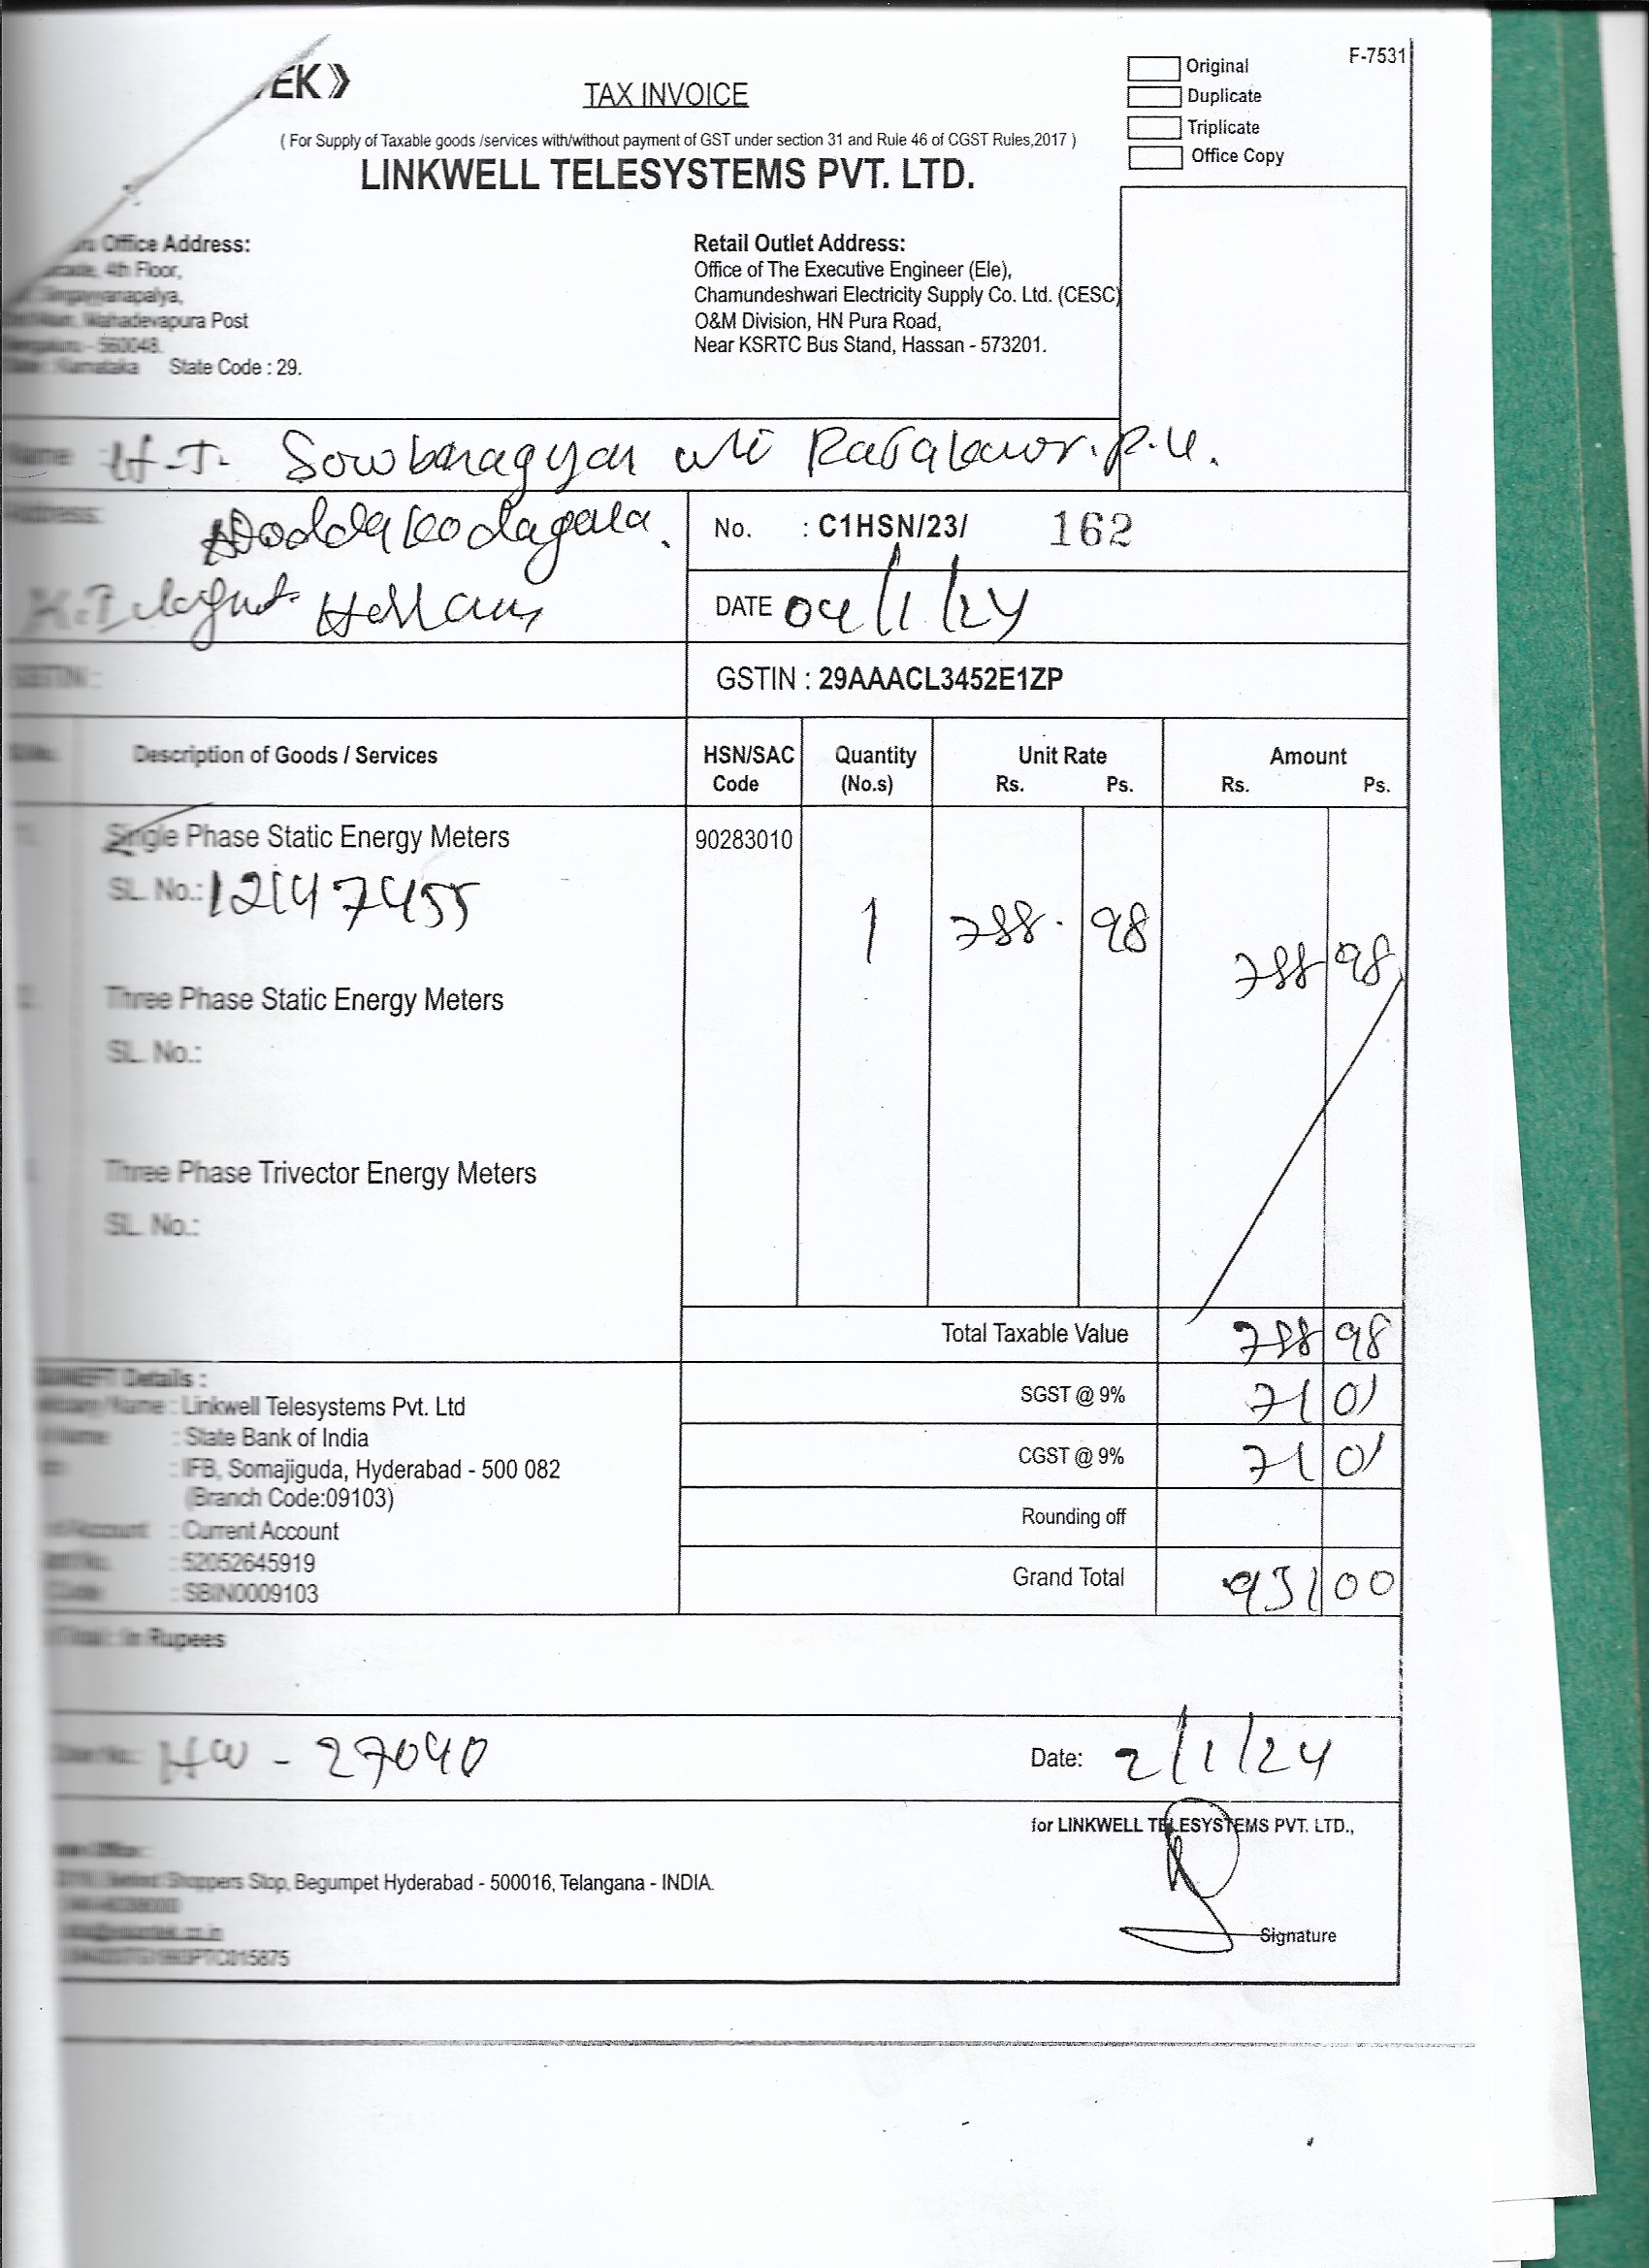 EK》
TAX INVOICE
( For Supply of Taxable goods /services with/without payment of GST under section 31 and Rule 46 of CGST Rules,2017 )
LINKWELL TELESYSTEMS PVT. LTD.
F-7531
Original
Duplicate
Triplicate
Office Copy
Office Address:
4th Floor,
Mahadevapura Post
560048.
Karnataka State Code : 29.
Retail Outlet Address:
Office of The Executive Engineer (Ele),
Chamundeshwari Electricity Supply Co. Ltd. (CESC)
O&M Division, HN Pura Road,
Near KSRTC Bus Stand, Hassan - 573201.
Name H.J. Sowbhagya
Address: Doddakodagala.
No. : C1HSN/23/ 162
DATE 04/1/24
GSTIN :
GSTIN : 29AAACL3452E1ZP
Description of Goods / Services HSN/SAC Code Quantity (No.s) Unit Rate Rs. Ps. Amount Rs. Ps.
Single Phase Static Energy Meters 90283010
SL. No.: 12147455 1 788 . 98 788 98
Three Phase Static Energy Meters
SL. No.:
Three Phase Trivector Energy Meters
SL. No.:
Total Taxable Value 788 98
SGST @ 9% 71 01
CGST @ 9% 71 01
Rounding off
Grand Total 931 00
Details :
Name : Linkwell Telesystems Pvt. Ltd
Name : State Bank of India
: IFB, Somajiguda, Hyderabad - 500 082
(Branch Code:09103)
Account : Current Account
: 52052645919
: SBIN0009103
In Rupees
HW - 27040
Date: 2/1/24
for LINKWELL TELESYSTEMS PVT. LTD.,
Shoppers Stop, Begumpet Hyderabad - 500016, Telangana - INDIA.
Signature